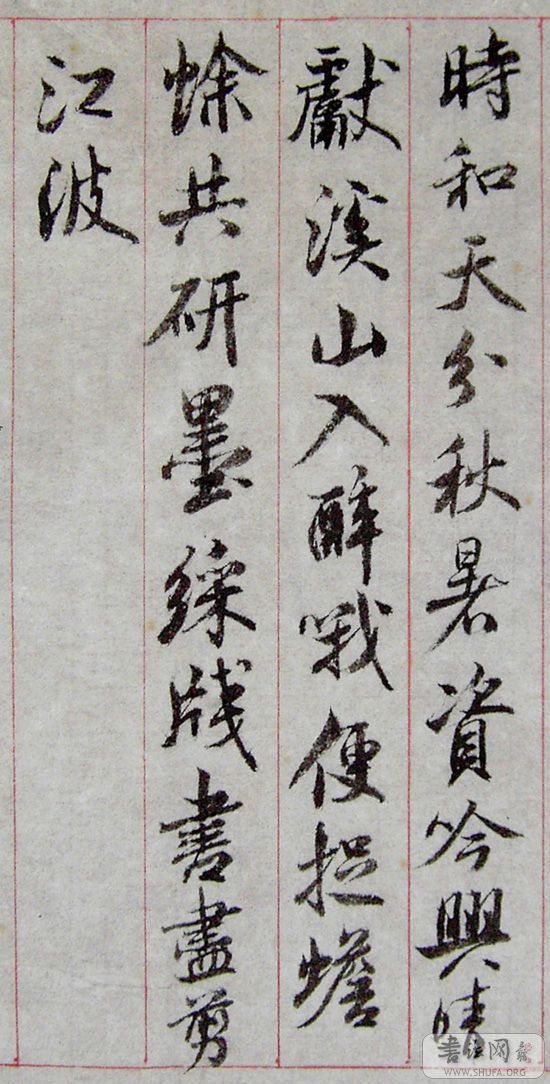 時和天分秋暑資吟興晴
獻溪山入醉哦便捉蟾
蜍共研墨綵牋書盡剪
江波
書法网
WWW.SHUFA.ORG